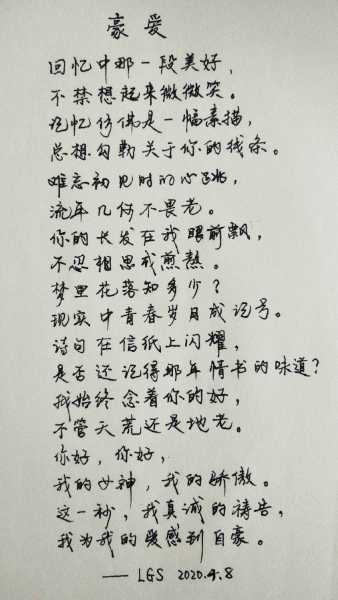 豪爱
回忆中那一段美好，
不禁想起来微微笑。
记忆仿佛是一幅素描，
总想勾勒关于你的线条。
难忘初见时的心跳，
流年几何不畏老。
你的长发在我眼前飘，
不忍相思成煎熬。
梦里花落知多少？
现实中青春岁月成记号。
诗句在信纸上闪耀，
是否还记得那年情书的味道？
我始终念着你的好，
不管天荒还是地老。
你好，你好，
我的女神，我的骄傲。
这一秒，我真诚的祷告，
我为我的爱感到自豪。
—— LGS 2020.4.8